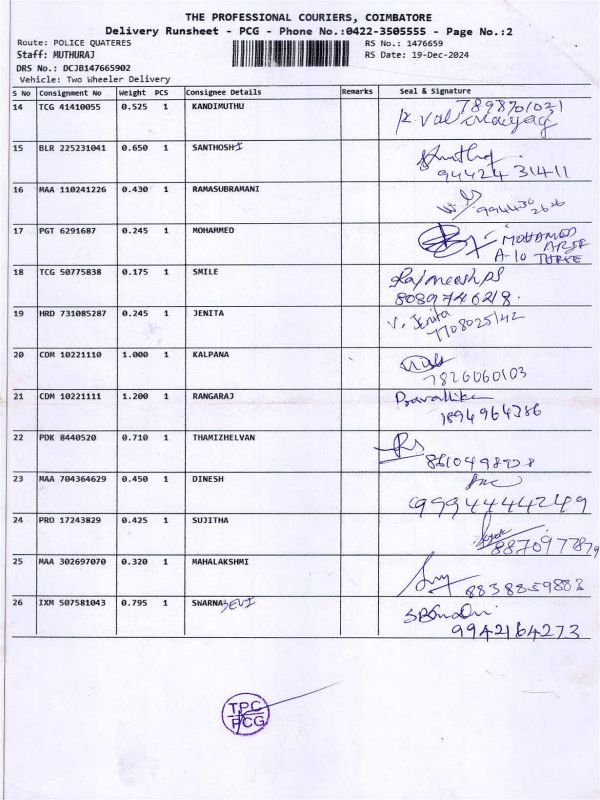 THE PROFESSIONAL COURIERS, COIMBATORE
Delivery Runsheet - PCG - Phone No.:0422-3505555 - Page No.:2
Route: POLICE QUATERES RS No.: 1476659
Staff: MUTHURAJ RS Date: 19-Dec-2024
DRS No.: DCJB147665902
Vehicle: Two Wheeler Delivery
S No Consignment No Weight PCS Consignee Details Remarks Seal & Signature
14 TCG 41410055 0.525 1 KANDIMUTHU 7898701021
15 BLR 225231041 0.650 1 SANTHOSHI
94424 31411
16 MAA 110241226 0.430 1 RAMASUBRAMANI
17 PGT 6291687 0.245 1 MOHAMMED MOHAMED
A-10 THREE
18 TCG 50775838 0.175 1 SMILE
8089746218.
19 HRD 731085287 0.245 1 JENITA V. Jenita
7708025142
20 CDM 10221110 1.000 1 KALPANA
7826060103
21 CDM 10221111 1.200 1 RANGARAJ
1894964386
22 PDK 8440520 0.710 1 THAMIZHELVAN
23 MAA 704364629 0.450 1 DINESH
9994444249
24 PRO 17243829 0.425 1 SUJITHA
8870977879
25 MAA 302697070 0.320 1 MAHALAKSHMI
8838859883
26 IXM 507581043 0.795 1 SWARNA DEVI
9942164273
TPC
PCG